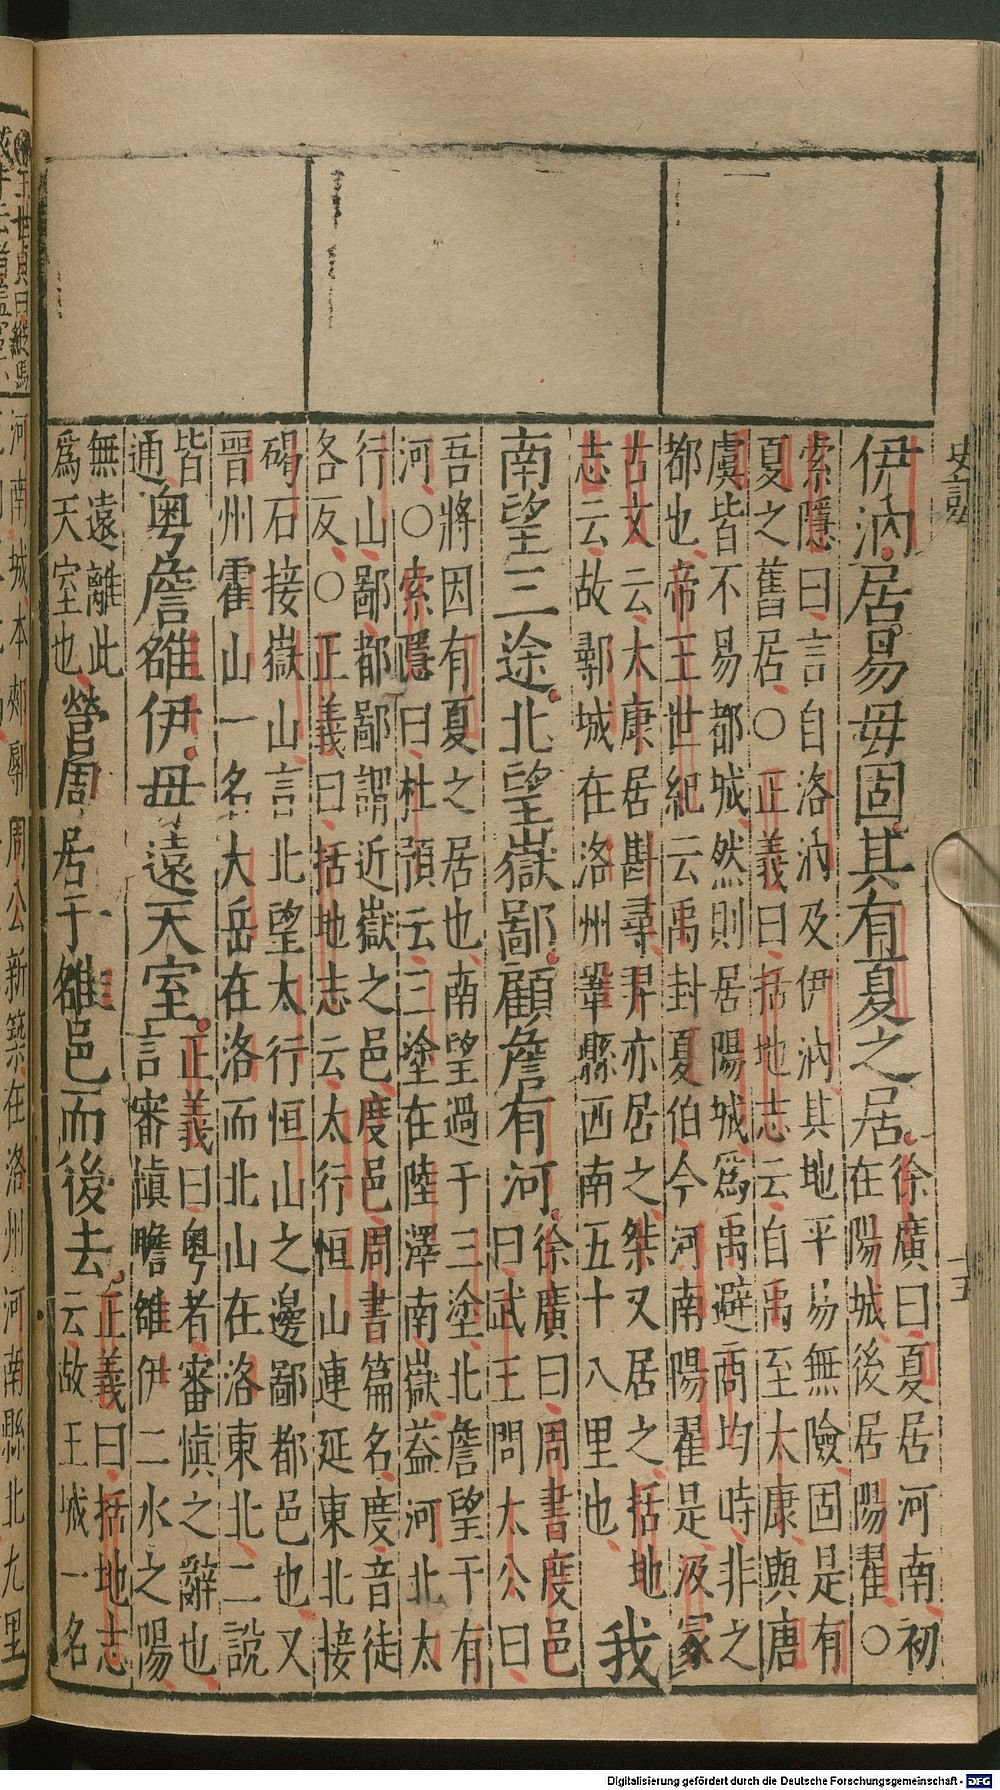 史記
十五
伊汭居昜毋固其有夏之居徐廣曰夏居河南初
在陽城後居陽翟○
索隱曰言自洛汭及伊汭其地平昜無險固是有
夏之舊居○正義曰括地志云自禹至太康與唐
虞皆不易都城然則居陽城爲禹避商均時非之
都也帝王世紀云禹封夏伯今河南陽翟是汲冢
古文云太康居斟尋羿亦居之桀又居之括地
志云故鄩城在洛州鞏縣西南五十八里也我
南望三途北望嶽鄙顧詹有河徐廣曰周書度邑
曰武王問太公曰
吾將因有夏之居也南望過于三塗北詹望于有
河○索隱曰杜預云三塗在陸澤南嶽益河北太
行山鄙都鄙謂近嶽之邑度邑周書篇名度音徒
各反○正義曰括地志云太行恒山連延東北接
碣石接嶽山言北望太行恒山之邊鄙都邑也又
晉州霍山一名大岳在洛而北山在洛東北二說
皆
通粵詹雒伊毋遠天室正義曰粵者審慎之辭也
言審慎瞻雒伊二水之陽
無遠離此
爲天室也營周居于雒邑而後去正義曰括地志
云故王城一名
河南城本郟鄏周公新築在洛州河南縣北九里
Digitalisierung gefördert durch die Deutsche Forschungsgemeinschaft - DFG